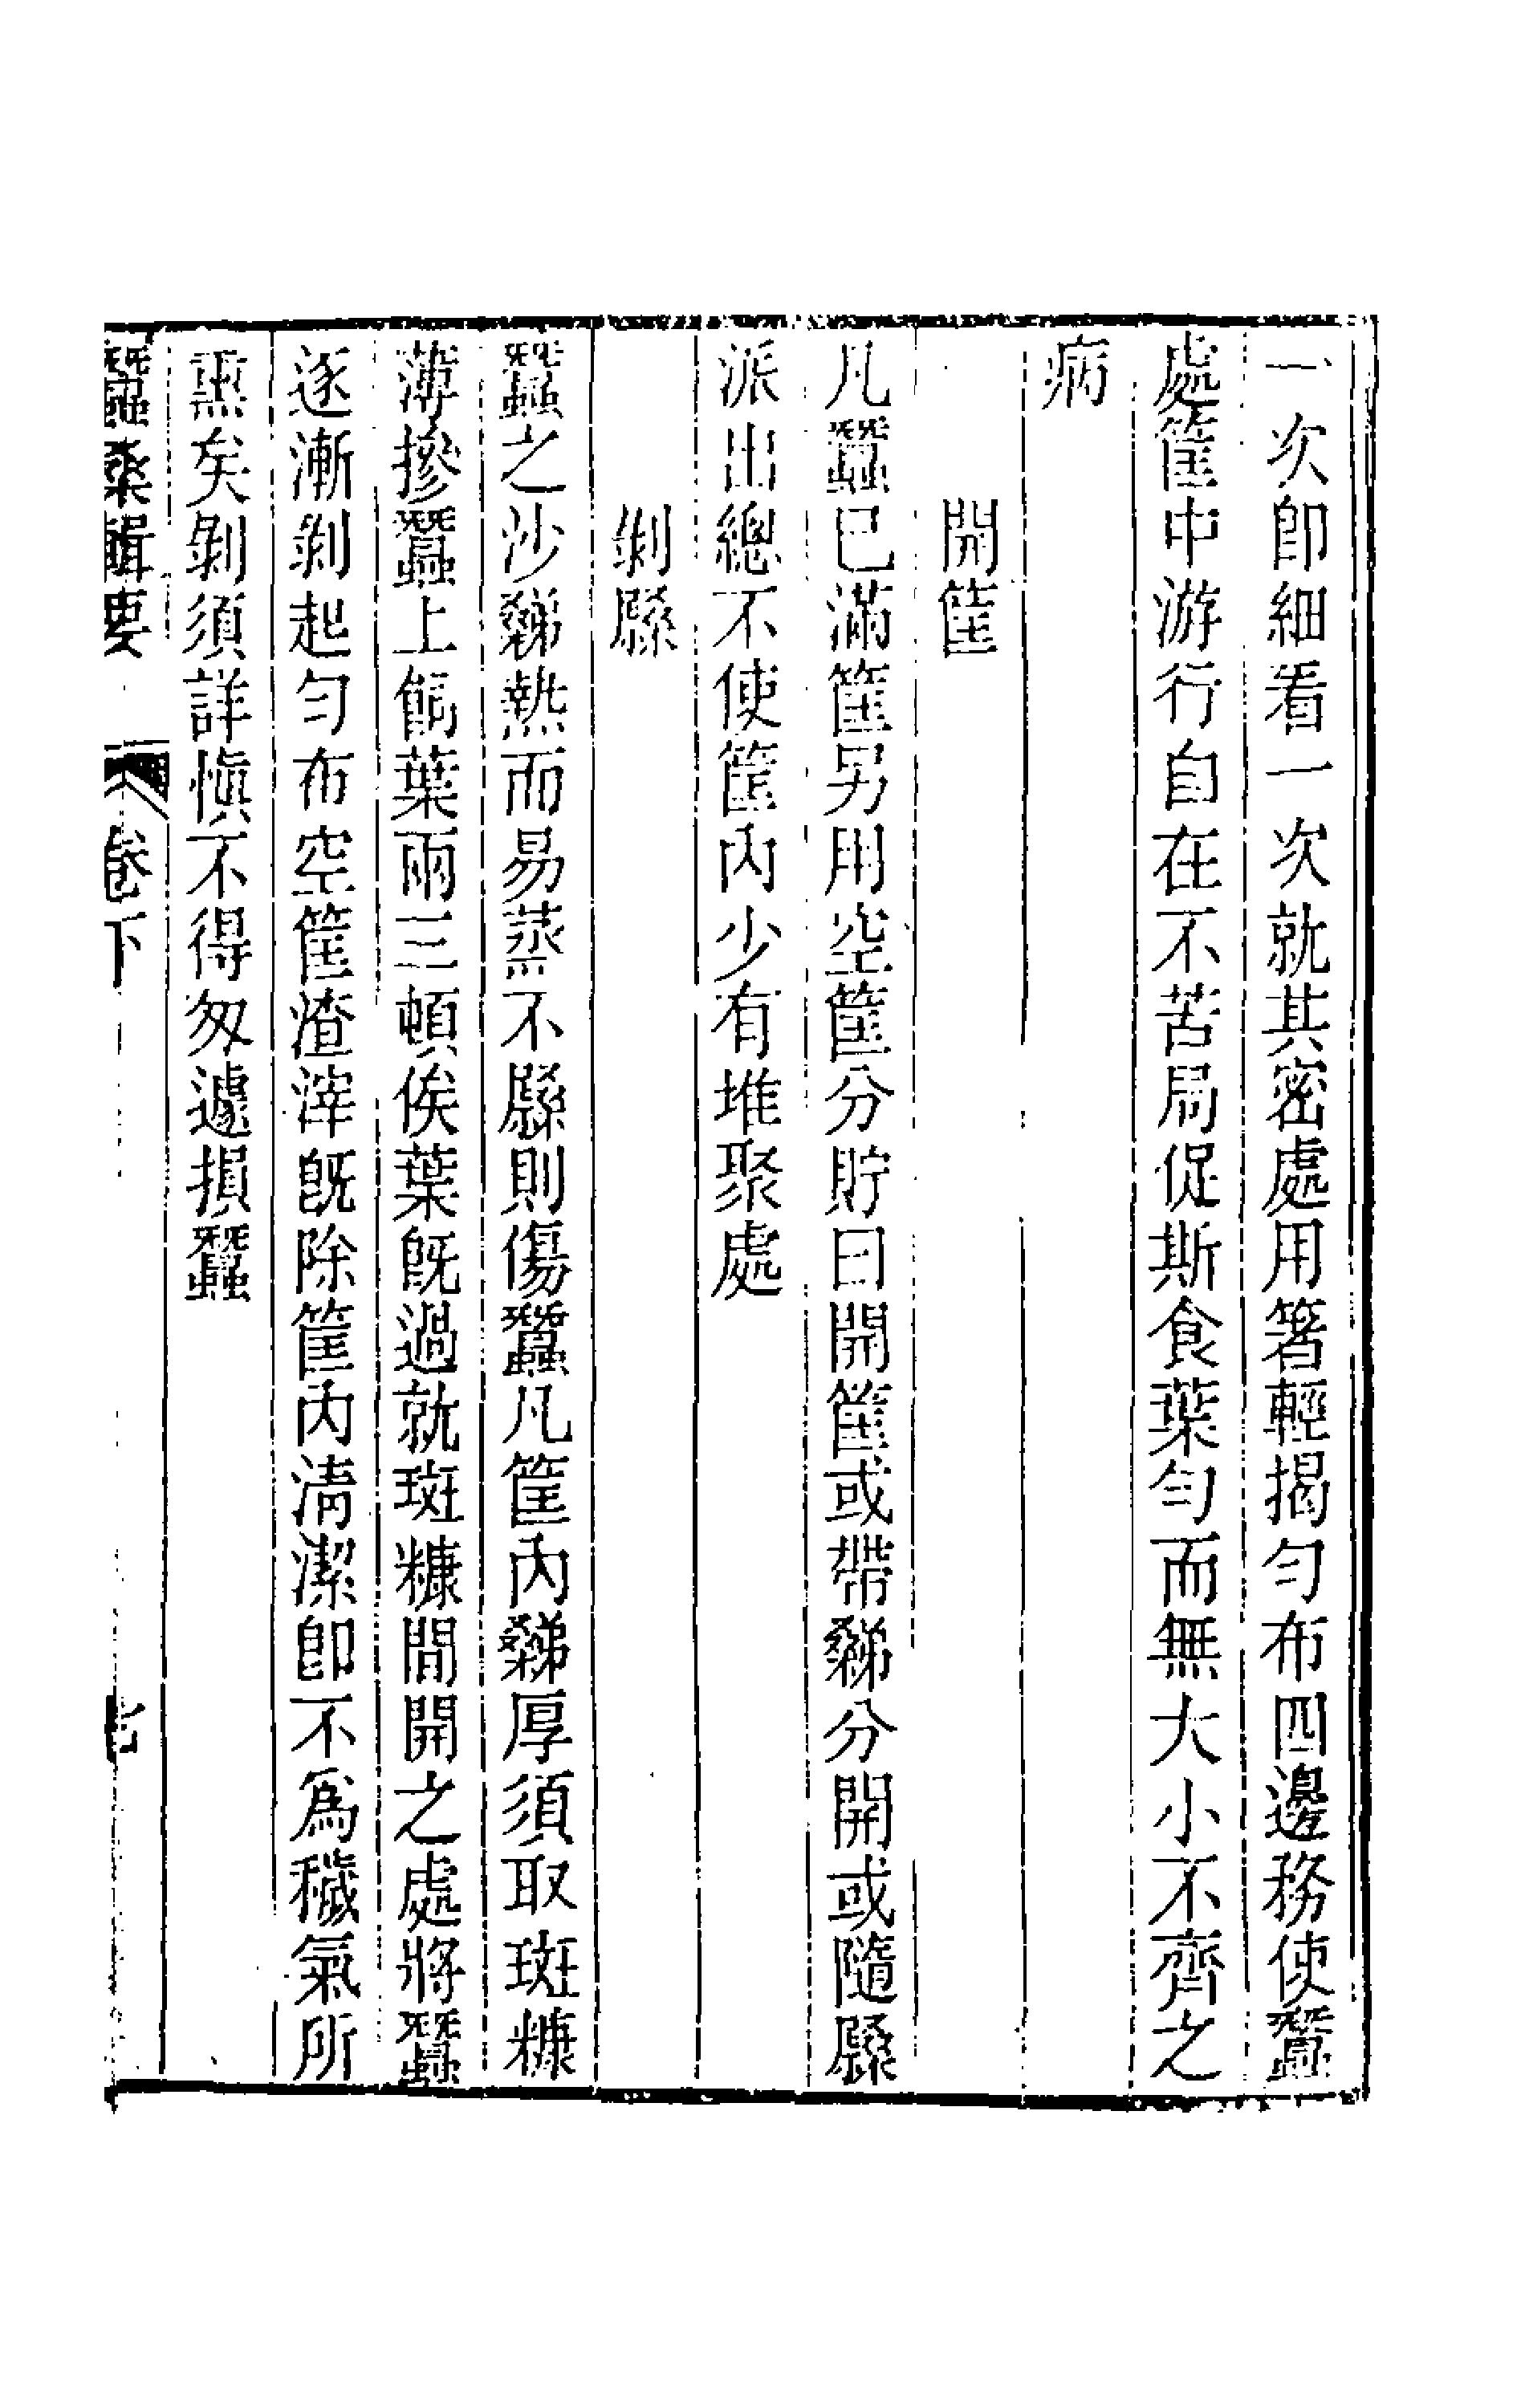 一次卽細看一次就其密處用箸輕揭勻布四邊務使蠶
處筐中游行自在不苦局促斯食葉勻而無大小不齊之
病
開筐
凡蠶已滿筐另用空筐分貯曰開筐或帶分開或隨
派出總不使筐內少有堆聚處
剝
蠶之沙熱而易蒸不則傷蠶凡筐內厚須取斑糠
薄摻蠶上飼葉兩三頓俟葉旣過就斑糠間開之處將蠶
逐漸剝起勻布空筐渣滓旣除筐內清潔卽不爲穢氣所
熏矣剝須詳愼不得匆遽損蠶
蠶桑輯要 卷下 七